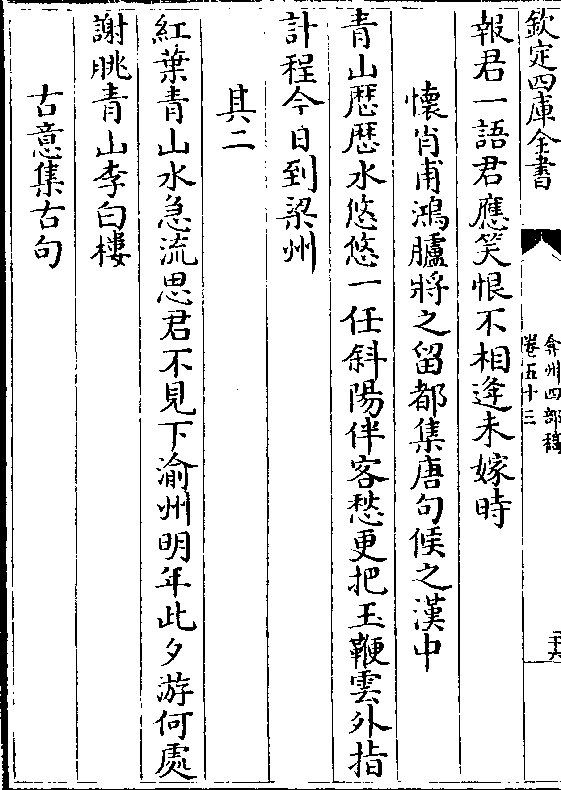 欽定四庫全書
弇州四部稿
卷五十三
報君一語君應笑恨不相逢未嫁時
懷肖甫鴻臚將之留都集唐句候之漢中
青山歴歴水悠悠一任斜陽伴客愁更把玉鞭雲外指
計程今日到梁州
其二
紅葉青山水急流思君不見下渝州明年此夕游何處
謝朓青山李白樓
古意集古句